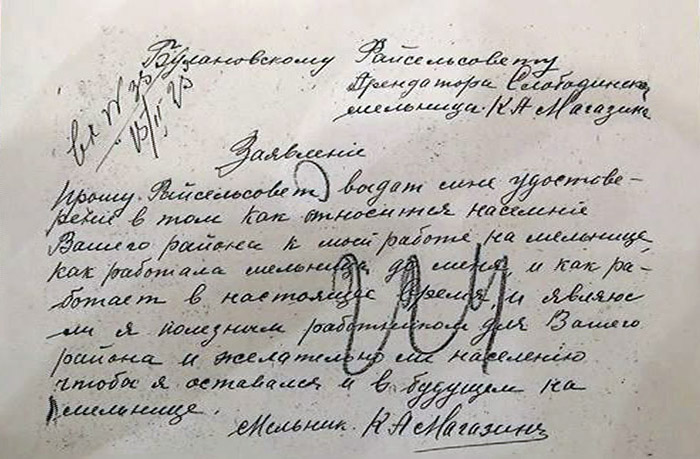 Булановскому Райсельсовету
Арендатора Слободинской
мельницы К А Магазин
вх № 35
15/II 23
Заявленіе
Прошу Райсельсовет выдат мне удостове-
рение в том как относится населеніе
Вашего района к моей работе на мельнице,
как работала мельница до меня, и как ра-
ботает в настоящие время, и являюс
ли я полезным работником для Вашего
района и желательно ли населению
чтобы я оставался и в будущем на
мельнице.
Мельник. К А Магазинъ